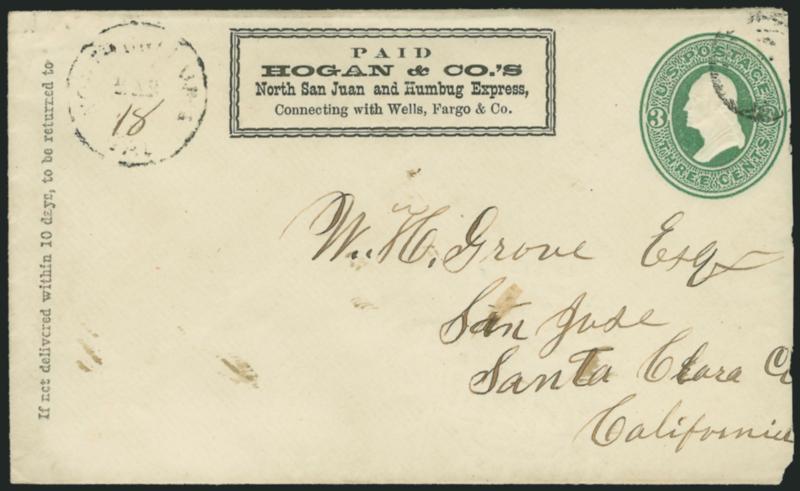 PAID
HOGAN & CO.'S
North San Juan and Humbug Express,
Connecting with Wells, Fargo & Co.
U.S. POSTAGE
3
THREE CENTS
18
CAL
If not delivered within 10 days, to be returned to
W. H. Grove Esq
San Jose
Santa Clara Co
California